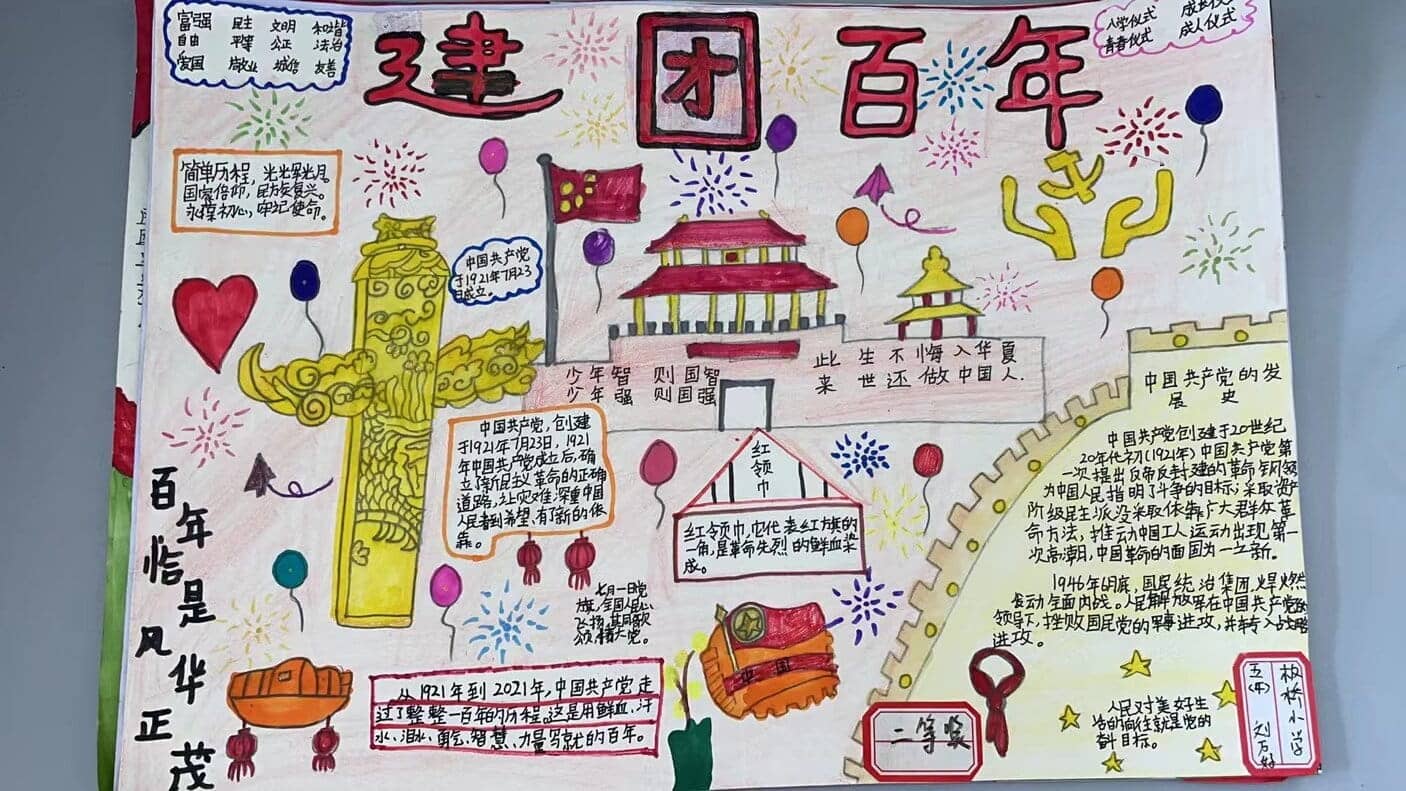 建团百年
富强 民主 文明 和谐
自由 平等 公正 法治
爱国 敬业 诚信 友善
入学仪式 成长仪式
青春仪式 成人仪式
简单历程,
国家信仰,民族复兴。
永葆初心,牢记使命。
中国共产党
于1921年7月23
日成立。
少年智 则国智
少年强 则国强
此生不悔入华夏
来世还做中国人.
中国共产党,创建
于1921年7月23日,1921
年中国共产党成立后,确
立了新民主义革命的正确
道路,让灾难深重中国
人民看到希望,有了新的依
靠。
红领巾
红领巾,它代表红旗的
一角,是革命先烈的鲜血染
成。
中国共产党的发
展史
中国共产党创建于20世纪
20年代初(1921年),中国共产党第
一次提出反帝反封建的革命纲领
为中国人民指明了斗争的目标;采取资产
阶级民主派没采取依靠广大群众革
命方法,推动中国工人运动出现第一
次高潮,中国革命的面因为一立新。
1946年6月底,国民统治集团,悍然
发动全面内战。人民解放军在中国共产党的
领导下,挫败国民党的军事进攻,并转入战略
进攻。
人民对美好生
活的向往就是党的
奋斗目标。
七月一日党
旗,全国人民心
飞扬,其同歌
颂精大党。
从1921年到2021年,中国共产党走
过了整整一百年的历程。这是用鲜血、汗
水、泪水、勇气、智慧、力量写就的百年。
百年恰是
风华正茂
中国
二等奖
板桥小学